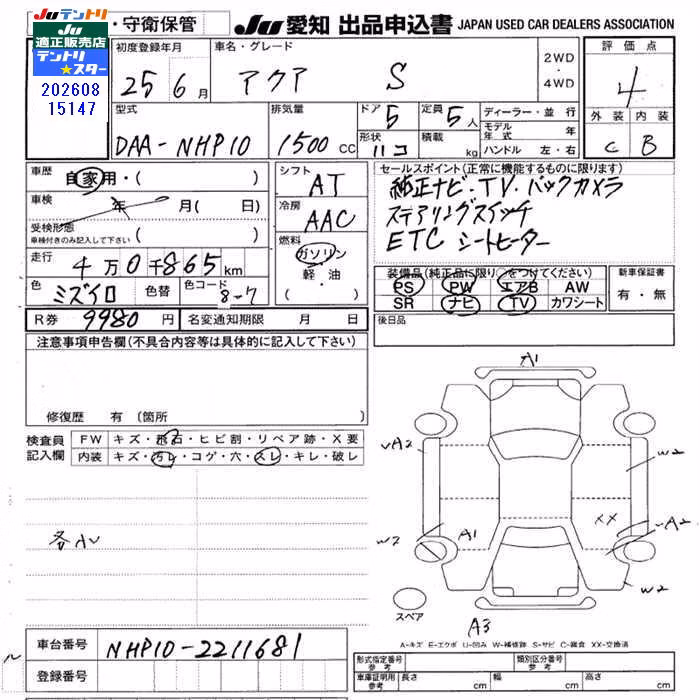 JUテントリ
JU
適正販売店
テントリ
★スター
202608
15147
・守衛保管
JU 愛知 出品申込書 JAPAN USED CAR DEALERS ASSOCIATION
初度登録年月
25 6月
車名・グレード
アクア S
2WD
・
4WD
評価点
4
外装 内装
C B
型式
DAA-NHP10
排気量
1500 CC
ドア 5
形状 ハコ
定員 5人
積載 kg
ディーラー・並行
モデル年式 年
ハンドル 左・右
車歴
自家用・( )
車検
年 月( 日)
受検形態
車検付きのみ記入して下さい ・( )
走行
4万0千865km
色
ミズイロ
色替
色コード
8-7
シフト
AT
冷房
AAC
燃料
ガソリン
軽・油
・( )
セールスポイント(正常に機能するものに限ります)
純正ナビ・TV・バックカメラ
ステアリングスイッチ
ETC シートヒーター
装備品(純正品に限り○をつけてください)
PS PW エアB AW
SR ナビ TV カワシート
新車保証書
有・無
R券 9980円
名変通知期限 月 日
後日品
注意事項申告欄(不具合内容等は具体的に記入して下さい)
修復歴 有 (箇所 )
検査員
記入欄
FW キズ・飛石・ヒビ割・リペア跡・X要
内装 キズ・汚レ・コゲ・穴・スレ・キレ・破レ
各AU
A1
A2
W2
W2
A1
XX
A2
W2
A3
スペア
A-キズ E-エクボ U-凹み W-補修跡 S-サビ C-腐食 XX-交換済
車台番号
NHP10-2211681
登録番号
形式指定番号
参考
類別区分番号
参考
車庫証明用
参考
長さ cm 幅 cm 高さ cm